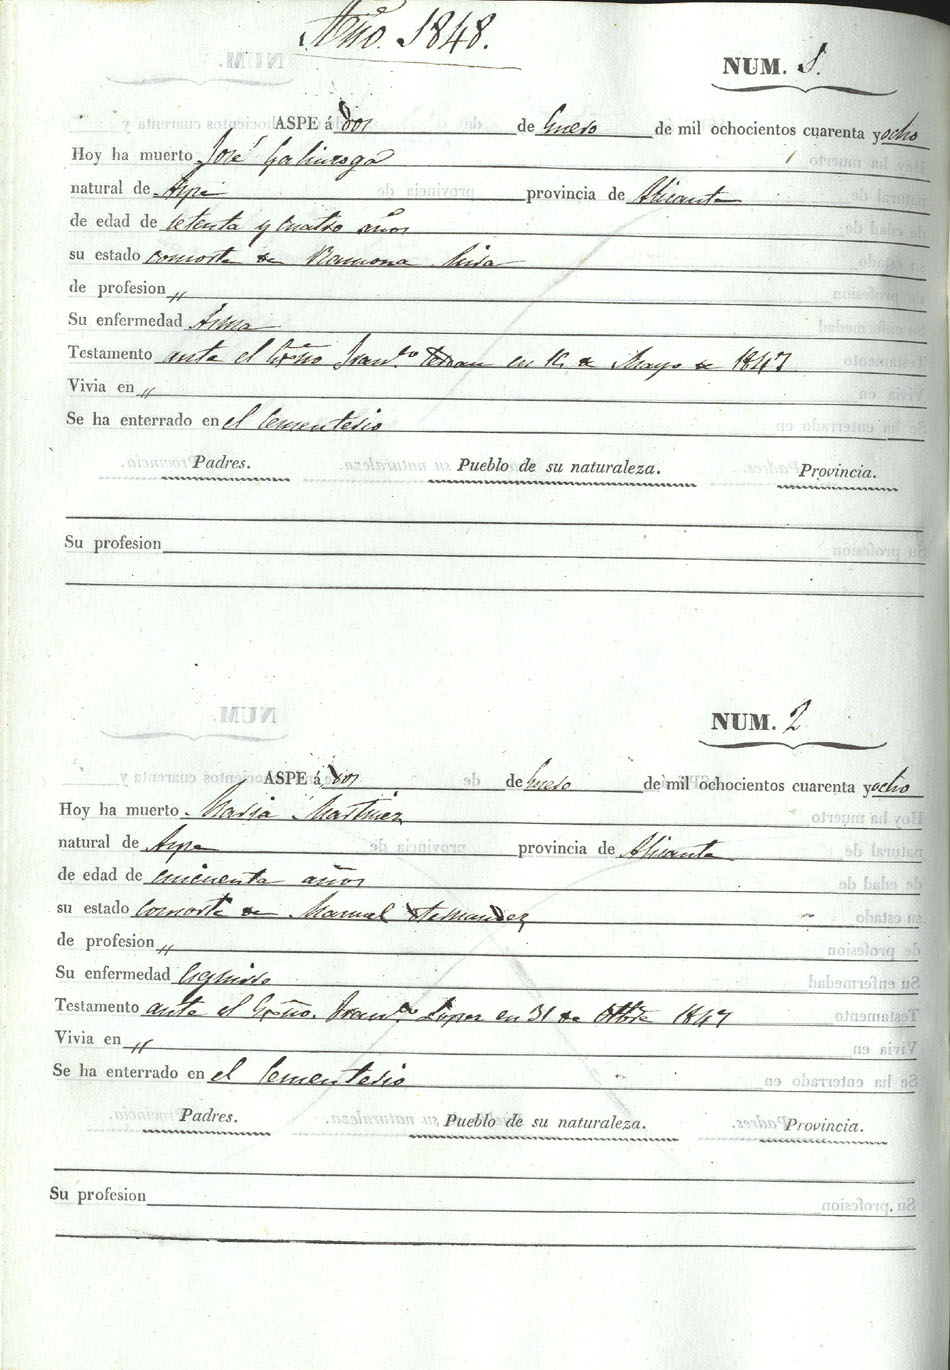 Año 1848.
NUM. 1.
ASPE á dos de Enero de mil ochocientos cuarenta y ocho
Hoy ha muerto José Galinsoga
natural de Aspe provincia de Alicante
de edad de setenta y cuatro años
su estado consorte de Ramona
de profesion „
Su enfermedad Asma
Testamento ante el Esño Fran.co en 16 de Mayo de 1847
Vivia en „
Se ha enterrado en el Cementerio
Padres. Pueblo de su naturaleza. Provincia.
Su profesion
NUM. 2
ASPE á dos de Enero de mil ochocientos cuarenta y ocho
Hoy ha muerto Maria Martinez
natural de Aspe provincia de Alicante
de edad de cincuenta años
su estado consorte de Manuel Hernandez
de profesion „
Su enfermedad
Testamento ante el Esño. Fran.co Lopez en 31 de Ottbre 1847
Vivia en „
Se ha enterrado en el Cementerio
Padres. Pueblo de su naturaleza. Provincia.
Su profesion